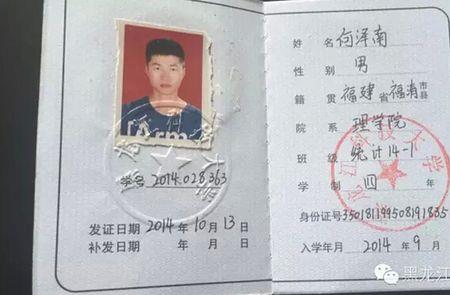 Arm
学号 2014.028363
发证日期 2014年10月13日
补发日期 年 月 日
姓名 何泽南
性别 男
籍贯 福建省福清市县
院系 理学院
班级 统计14-1
学制 四 年
身份证号 350181199508191835
入学年月 2014年9月
黑龙江